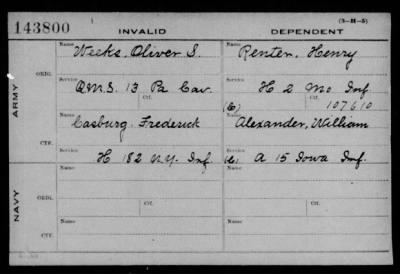 143800 INVALID DEPENDENT (3-H-5)
ARMY
ORIG.
Name Weeks, Oliver S. Name Renter, Henry
Service Q.M.S. 13 Pa Cav. Service H 2 Mo Inf
Ctf. Ctf. 107610
CTF.
Name Casburg, Frederick Name Alexander, William
Service H 182 N.Y. Inf. Service A 15 Iowa Inf.
NAVY
ORIG.
Name Ctf. Name Ctf.
CTF.
Name Name